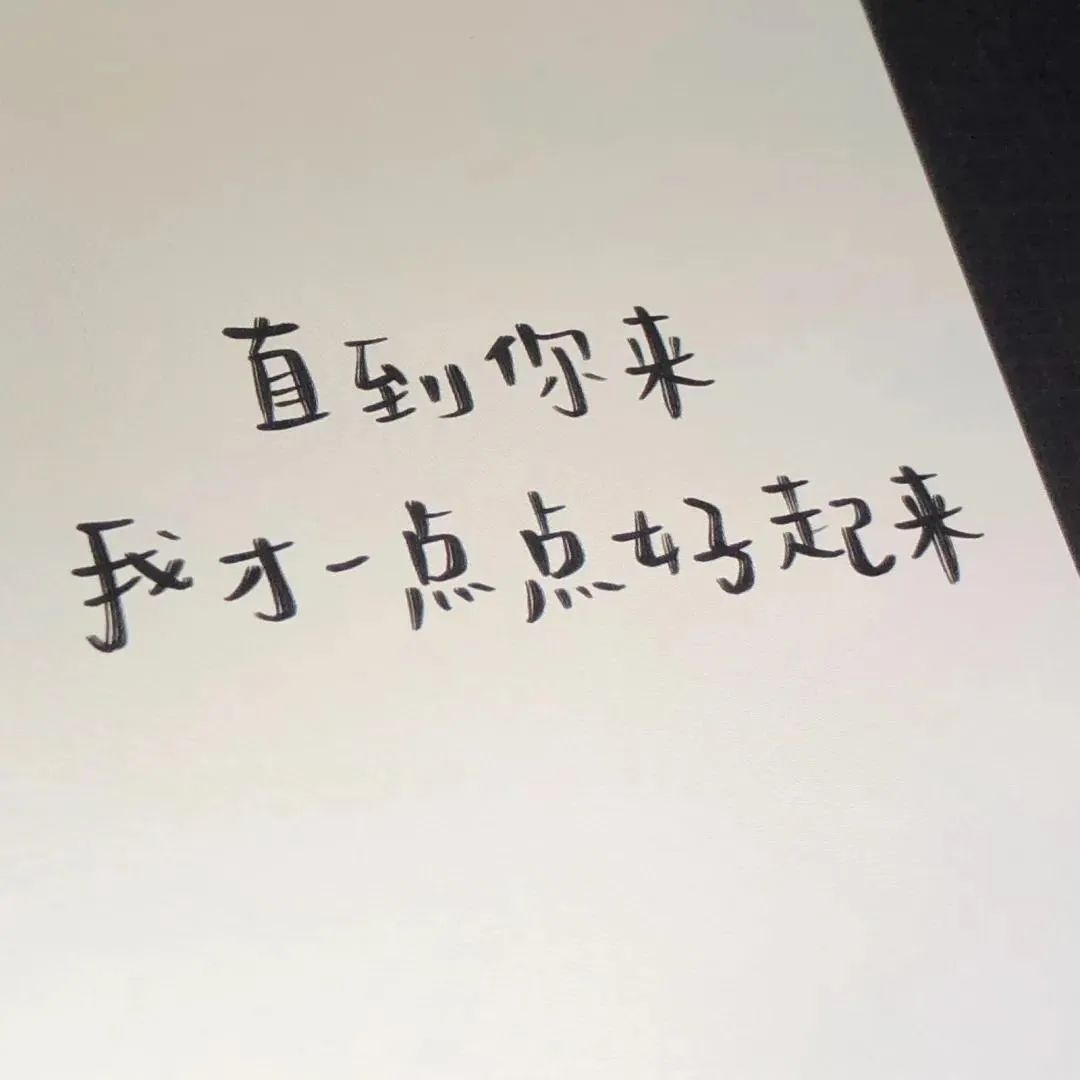 直到你来
我才一点点好起来